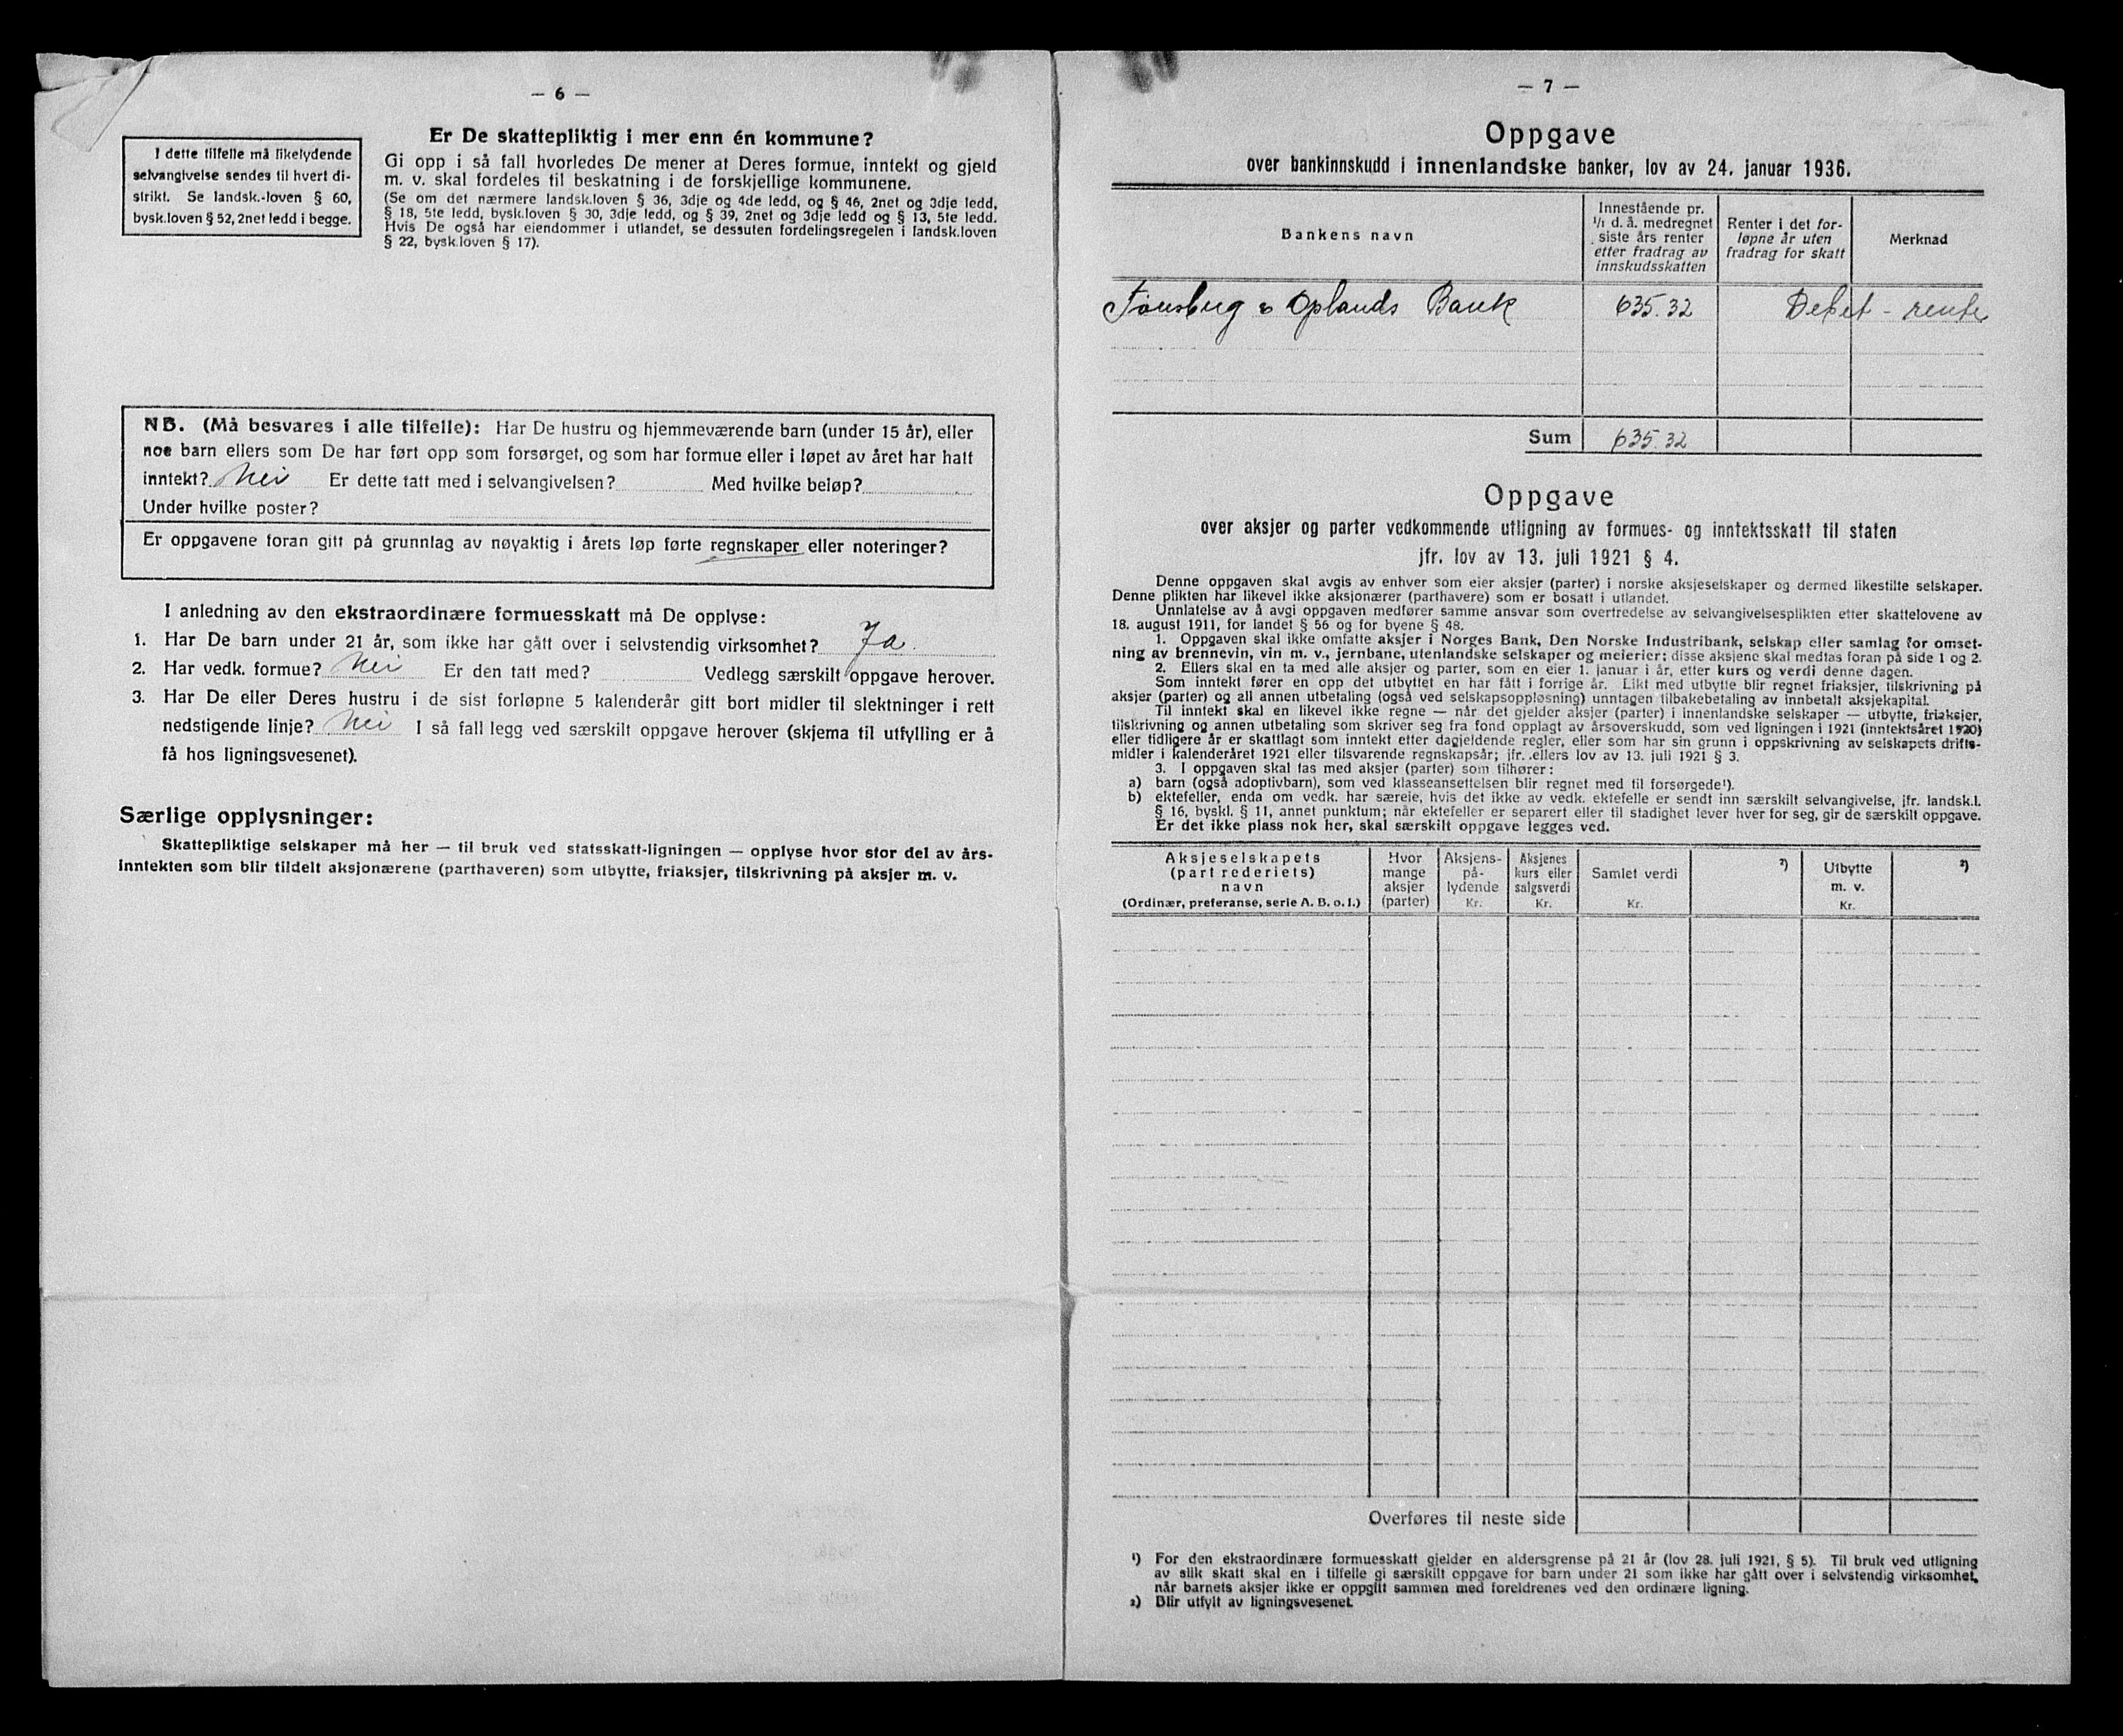 — 6 —
I dette tilfelle må likelydende
selvangivelse sendes til hvert di-
strikt. Se landsk.-loven § 60,
bysk.loven § 52, 2net ledd i begge.
Er De skattepliktig i mer enn én kommune?
Gi opp i så fall hvorledes De mener at Deres formue, inntekt og gjeld
m. v. skal fordeles til beskatning i de forskjellige kommunene.
(Se om det nærmere landsk.loven § 36, 3dje og 4de ledd, og § 46, 2net og 3dje ledd,
§ 18, 5te ledd, bysk.loven § 30, 3dje ledd, og § 39, 2net og 3dje ledd og § 13, 5te ledd.
Hvis De også har eiendommer i utlandet, se dessuten fordelingsregelen i landsk.loven
§ 22, bysk.loven § 17).
NB. (Må besvares i alle tilfelle): Har De hustru og hjemmeværende barn (under 15 år), eller
noe barn ellers som De har ført opp som forsørget, og som har formue eller i løpet av året har hatt
inntekt? Nei Er dette tatt med i selvangivelsen? Med hvilke beløp?
Under hvilke poster?
Er oppgavene foran gitt på grunnlag av nøyaktig i årets løp førte regnskaper eller noteringer?
I anledning av den ekstraordinære formuesskatt må De opplyse:
1. Har De barn under 21 år, som ikke har gått over i selvstendig virksomhet? Ja.
2. Har vedk. formue? Nei Er den tatt med? Vedlegg særskilt oppgave herover.
3. Har De eller Deres hustru i de sist forløpne 5 kalenderår gitt bort midler til slektninger i rett
nedstigende linje? Nei I så fall legg ved særskilt oppgave herover (skjema til utfylling er å
få hos ligningsvesenet).
Særlige opplysninger:
Skattepliktige selskaper må her — til bruk ved statsskatt-ligningen — opplyse hvor stor del av års-
inntekten som blir tildelt aksjonærene (parthaveren) som utbytte, friaksjer, tilskrivning på aksjer m. v.
— 7 —
Oppgave
over bankinnskudd i innenlandske banker, lov av 24. januar 1936.
Bankens navn
Innestående pr.
1/1 d. å. medregnet
siste års renter
etter fradrag av
innskudsskatten
Renter i det for-
løpne år uten
fradrag for skatt
Merknad
Tønsberg & Oplands Bank 635.32 Debet - rente
Sum 635.32
Oppgave
over aksjer og parter vedkommende utligning av formues- og inntektsskatt til staten
jfr. lov av 13. juli 1921 § 4.
Denne oppgaven skal avgis av enhver som eier aksjer (parter) i norske aksjeselskaper og dermed likestilte selskaper.
Denne plikten har likevel ikke aksjonærer (parthavere) som er bosatt i utlandet.
Unnlatelse av å avgi oppgaven medfører samme ansvar som overtredelse av selvangivelsesplikten etter skattelovene av
18. august 1911, for landet § 56 og for byene § 48.
1. Oppgaven skal ikke omfatte aksjer i Norges Bank, Den Norske Industribank, selskap eller samlag for omset-
ning av brennevin, vin m. v., jernbane, utenlandske selskaper og meierier; disse aksjene skal medtas foran på side 1 og 2.
2. Ellers skal en ta med alle aksjer og parter, som en eier 1. januar i år, etter kurs og verdi denne dagen.
Som inntekt fører en opp det utbyttet en har fått i forrige år. Likt med utbytte blir regnet friaksjer, tilskrivning på
aksjer (parter) og all annen utbetaling (også ved selskapsoppløsning) unntagen tilbakebetaling av innbetalt aksjekapital.
Til inntekt skal en likevel ikke regne — når det gjelder aksjer (parter) i innenlandske selskaper — utbytte, friaksjer,
tilskrivning og annen utbetaling som skriver seg fra fond opplagt av årsoverskudd, som ved ligningen i 1921 (inntektsåret 1920)
eller tidligere år er skattlagt som inntekt etter dagjeldende regler, eller som har sin grunn i oppskrivning av selskapets drifts-
midler i kalenderåret 1921 eller tilsvarende regnskapsår; jfr. ellers lov av 13. juli 1921 § 3.
3. I oppgaven skal tas med aksjer (parter) som tilhører:
a) barn (også adoptivbarn), som ved klasseansettelsen blir regnet med til forsørgede¹).
b) ektefeller, enda om vedk. har særeie, hvis det ikke av vedk. ektefelle er sendt inn særskilt selvangivelse, jfr. landsk.l.
§ 16, byskl. § 11, annet punktum; når ektefeller er separert eller til stadighet lever hver for seg, gir de særskilt oppgave.
Er det ikke plass nok her, skal særskilt oppgave legges ved.
Aksjeselskapets
(part rederiets)
navn
(Ordinær, preferanse, serie A. B. o. l.)
Hvor
mange
aksjer
(parter)
Aksjens-
på-
lydende
Kr.
Aksjenes
kurs eller
salgsverdi
Kr.
Samlet verdi
Kr.
²)
Utbytte
m. v.
Kr.
²)
Overføres til neste side
¹) For den ekstraordinære formuesskatt gjelder en aldersgrense på 21 år (lov 28. juli 1921, § 5). Til bruk ved utligning
av slik skatt skal en i tilfelle gi særskilt oppgave for barn under 21 som ikke har gått over i selvstendig virksomhet,
når barnets aksjer ikke er oppgitt sammen med foreldrenes ved den ordinære ligning.
²) Blir utfylt av ligningsvesenet.